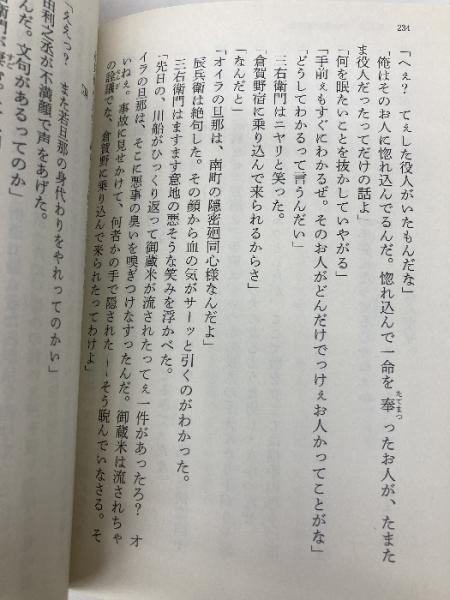 234
「へぇ？　てぇした役人がいたもんだな」
「俺はそのお人に惚れ込んでるんだ。惚れ込んで一命を奉ったお人が、たまた
たてまつ
ま役人だったってだけの話よ」
「何を眠たいことを抜かしていやがる」
「手前ぇもすぐにわかるぜ。そのお人がどんだけでっけぇお人かってことがな」
「どうしてわかるって言うんだい」
三右衛門はニヤリと笑った。
「倉賀野宿に乗り込んで来られるからさ」
「なんだと」
「オイラの旦那は、南町の隠密廻同心様なんだよ」
辰兵衛は絶句した。その顔から血の気がサーッと引くのがわかった。
三右衛門はますます意地の悪そうな笑みを浮かべた。
「先日の、川船がひっくり返って御蔵米が流されたってぇ一件があったろ？　オ
イラの旦那は、そこに悪事の臭いを嗅ぎつけなすったんだ。御蔵米は流されちゃ
いねぇ。事故に見せかけて、何者かの手で隠された――そう睨んでいなさる。そ
の詮議でな、倉賀野に乗り込んで来られたってわけよ」
「ええっ？　また若旦那の身代わりをやれってのかい」
田利之丞が不満顔で声をあげた。
んだ。文句があるってのか」